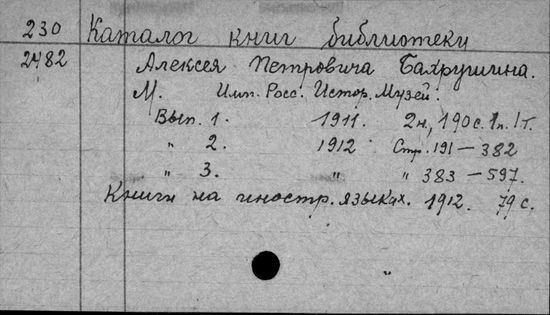 230 Каталог книг библиотеки
2482 Алексея Петровича Бахрушина.
М. Имп. Росс. Истор. Музей.
Вып. 1. 1911. 2н, 190 с. 1 п. 1 т.
" 2. 1912 Стр. 191 — 382
" 3. " " 383 — 597.
Книги на иностр. языках. 1912. 79 с.
"